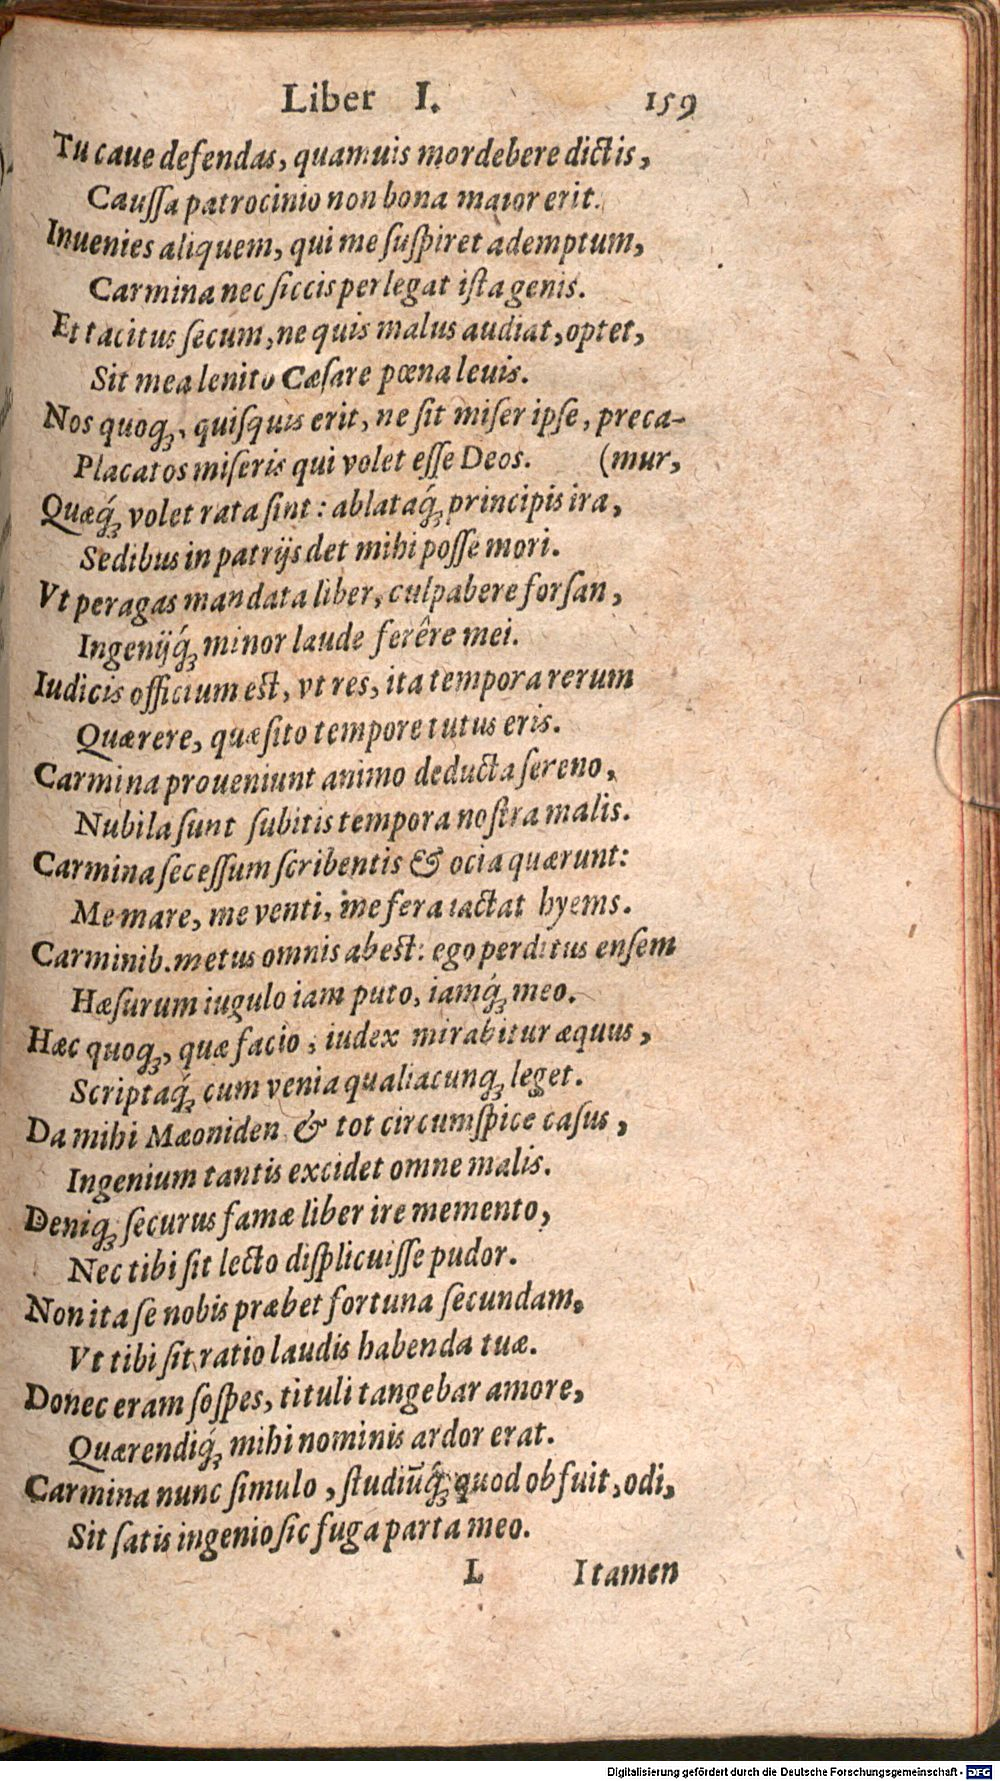 Liber I. 159
Tu caue defendas, quamuis mordebere dictis,
Caussa patrocinio non bona maior erit.
Inuenies aliquem, qui me suspiret ademptum,
Carmina nec siccis perlegat ista genis.
Et tacitus secum, ne quis malus audiat, optet,
Sit mea lenito Cæsare pœna leuis.
Nos quoq;, quisquis erit, ne sit miser ipse, preca-
Placatos miseris qui volet esse Deos. (mur,
Quæq́; volet rata sint: ablataq́; principis ira,
Sedibus in patrijs det mihi posse mori.
Vt peragas mandata liber, culpabere forsan,
Ingenijq́; minor laude ferêre mei.
Iudicis officium est, vt res, ita tempora rerum
Quærere, quæsito tempore tutus eris.
Carmina proueniunt animo deducta sereno,
Nubila sunt subitis tempora nostra malis.
Carmina secessum scribentis & ocia quærunt:
Me mare, me venti, me fera iactat hyems.
Carminib. metus omnis abest: ego perditus ensem
Hæsurum iugulo iam puto, iamq́; meo.
Hæc quoq;, quæ facio, iudex mirabitur æquus,
Scriptaq́; cum venia qualiacunq; leget.
Da mihi Mæoniden & tot circumspice casus,
Ingenium tantis excidet omne malis.
Deniq; securus famæ liber ire memento,
Nec tibi sit lecto displicuisse pudor.
Non ita se nobis præbet fortuna secundam,
Vt tibi sit ratio laudis habenda tuæ.
Donec eram sospes, tituli tangebar amore,
Quærendiq́; mihi nominis ardor erat.
Carmina nunc simulo, studiūq́; quod obfuit, odi,
Sit satis ingenio sic fuga parta meo.
L I tamen
Digitalisierung gefördert durch die Deutsche Forschungsgemeinschaft - DFG